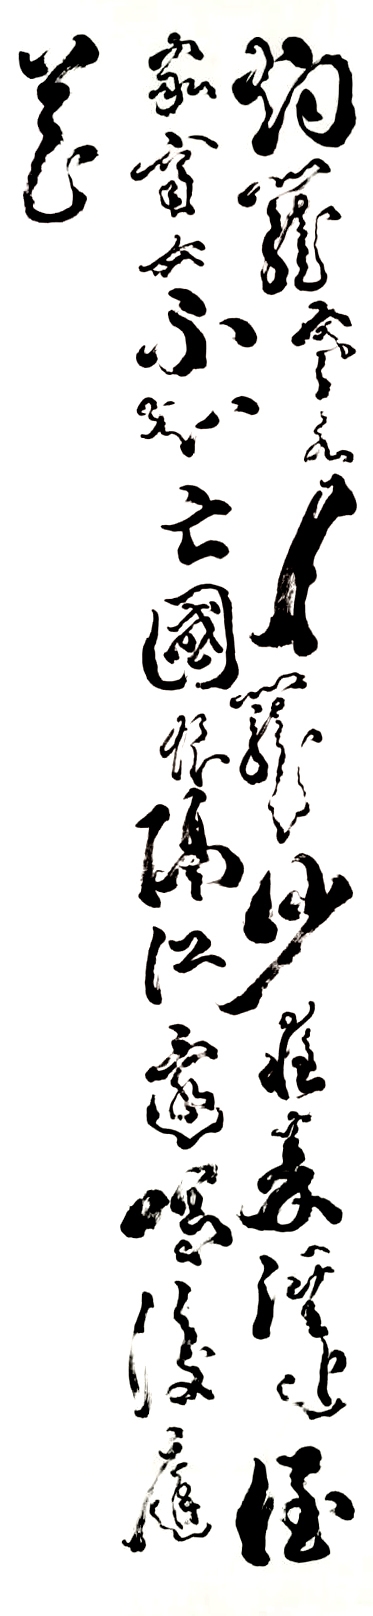 烟籠寒水月籠沙夜泊秦淮近酒
家商女不知亡國恨隔江猶唱後庭
花